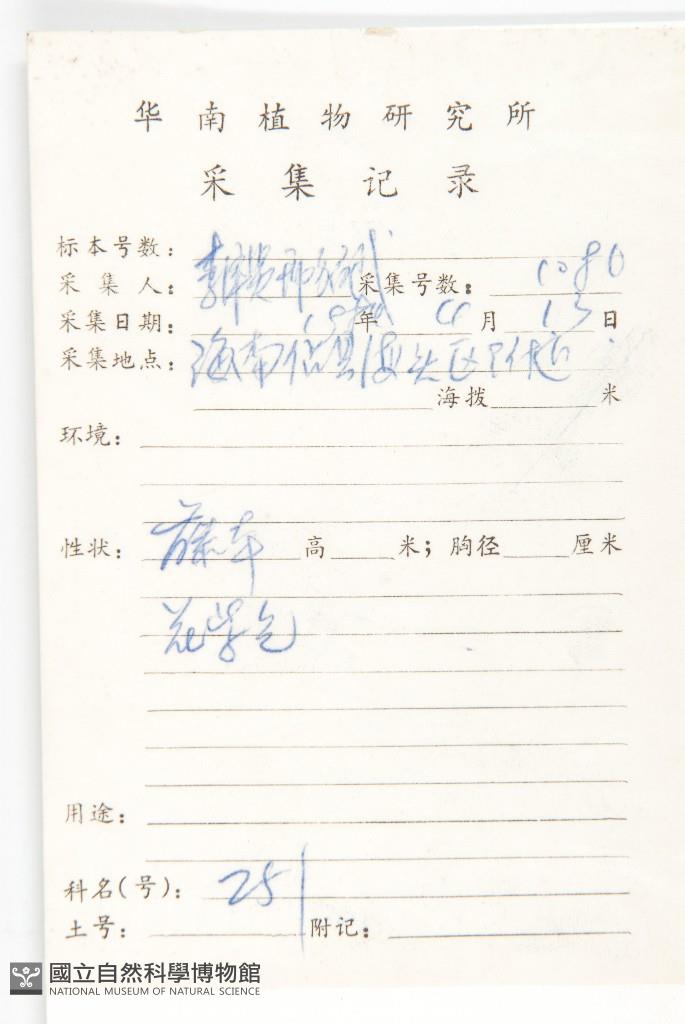 华南植物研究所
采集记录
标本号数：
采集人：李泽贤 采集号数：1080
采集日期： 年 4 月 13 日
采集地点：海南儋县海头区附近
海拨 米
环境：
性状：藤本 高 米；胸径 厘米
花紫色
用途：
科名(号)：251
土号： 附记：
國立自然科學博物館
NATIONAL MUSEUM OF NATURAL SCIENCE